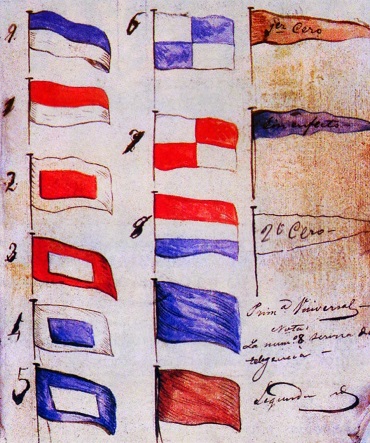 9
1
2
3
4
5
6
7
8
1er Cero
2º Cero
Prim.ª Universal
Nota:
La num 8 serena de
Segunda